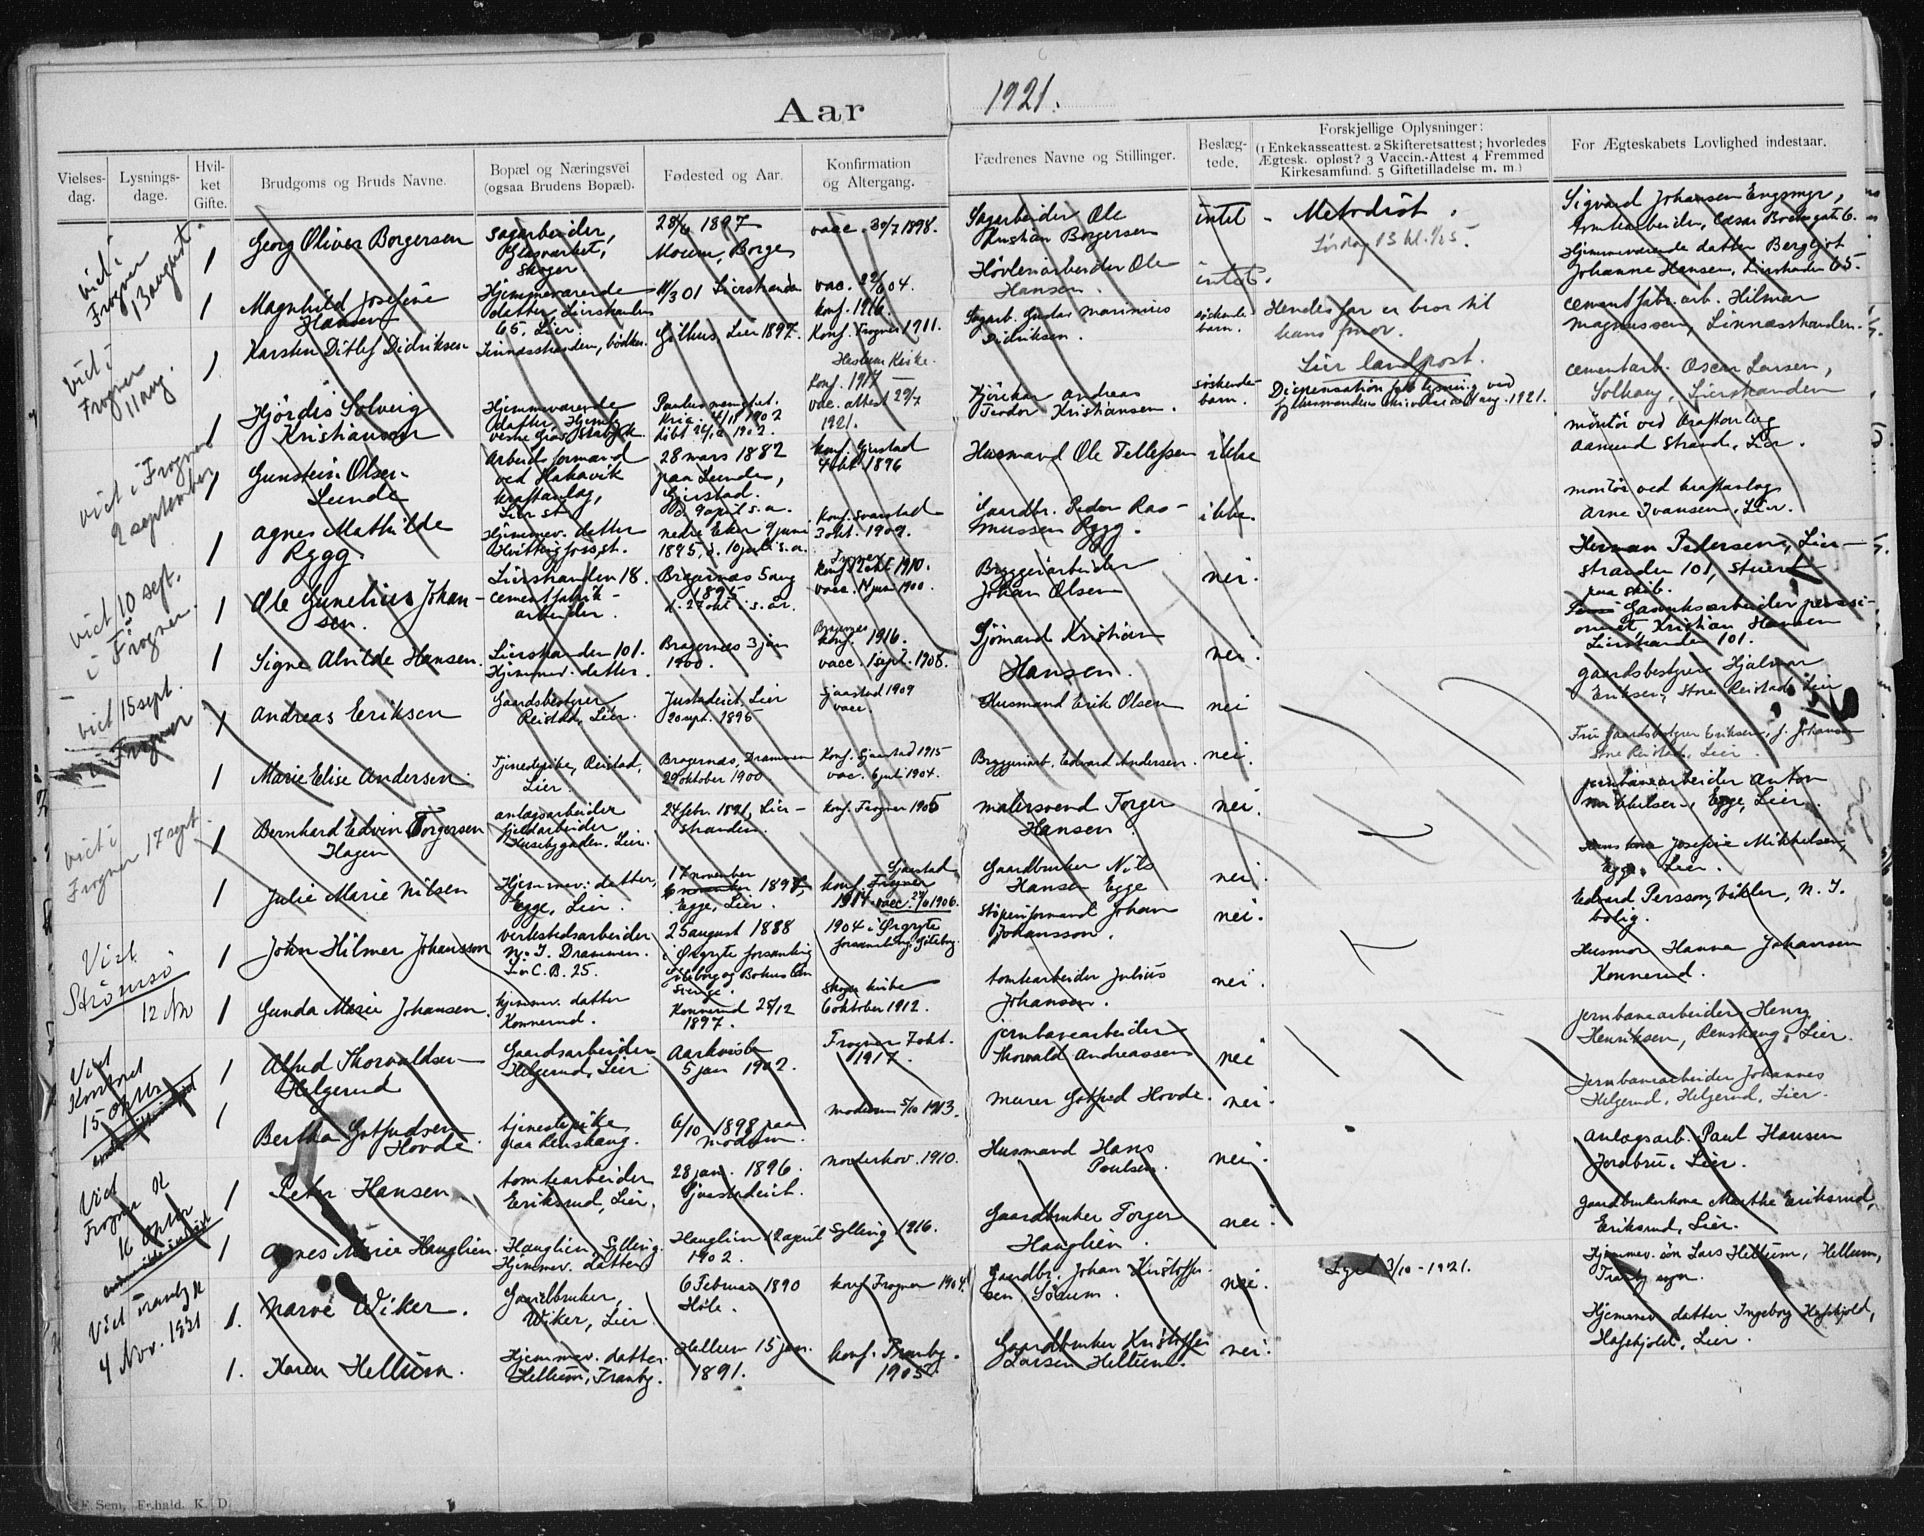 Aar 1921.
Vielses-dag. Lysnings-dage. Hvil-ket Gifte. Brudgoms og Bruds Navne. Bopæl og Næringsvei (ogsaa Brudens Bopæl). Fødested og Aar. Konfirmation og Altergang. Fædrenes Navne og Stillinger. Beslæg-tede. Forskjellige Oplysninger: (1 Enkekasseattest. 2 Skifteretsattest; hvorledes Ægtesk. opløst? 3 Vaccin.-Attest 4 Fremmed Kirkesamfund. 5 Giftetilladelse m. m.) For Ægteskabets Lovlighed indestaar.
viet i Frogner 13 august
1 Georg Oliver Borgersen
Sagarbeider, Glasværket, Skoger
1897 Moum, Borge
vacc. 30/7 1898.
Sagarbeider Ole Kristian Borgersen
intet
Metodist.
Sigvard Johansen Engsmyr,
1 Magnhild Josefine Hansen
Hjemmeværende datter, Lierstranden 65, Lier.
11/3 01 Lierstranden
konf. 1916.
Høvleriarbeider Ole Hansen.
intet.
Hjemmeværende datter Bergljot Johanne Hansen, Lierstranden 65.
viet i Frogner 11 aug.
1 Karsten Ditlef Didriksen
Linnesstranden, bødker.
Gilhus, Lier 1897.
Konf. Frogner 1911.
Sagarb. Gustav Marinius Didriksen.
søskende-barn.
Hendes far er bror til hans mor.
cementfabr.arb. Hilmar Magnussen, Linnesstranden.
Lier landpost.
1 Hjördis Solveig Kristiansen
Hjemmeværende datter,
Konf. 1917
vac. attest 29/7 1921.
Andreas Teodor Kristiansen.
søskende-barn.
Dispensation for lysning ved
aug. 1921.
cementarb. Oscar Larsen, Solhaug, Lierstranden
viet i Frogner 2 september
1 Gunstein Olsen Lunde
Arbeidsformand ved Hakavik kraftanlag, Lier st.
28 mars 1882 paa Lunde, Gjerstad. d. 9 april s. a.
konf. Gjerstad 4 okt. 1896
Husmand Ole Tellefsen
ikke
montör ved kraftanlag Aamund Strand, Lier.
1 Agnes Mathilde Rygg.
Hjemmev. datter Hvittingfoss st.
nedre Eker 9 juni 1895, d. 10 juli s. a.
Konf. Svarstad 3 okt. 1909.
Gaardbr. Peder Rasmussen Rygg.
ikke.
montör ved kraftanlag Arne Ivarsen, Lier.
viet 10 sept. i Frogner.
1 Ole Gunelius Johansen.
Lierstranden 18. cementfabrik-arbeider.
Bragernæs 5 aug 1895 d. 27 okt. s. år.
Frogner konf. okt 1910. vacc. 14 jun 1900.
Bryggeriarbeider Johan Olsen
nei.
Herman Pedersen, Lierstranden 101, stuert paa skib.
1 Signe Alvilde Hansen.
Lierstranden 101. Hjemmev. datter.
Bragernæs 3 jan 1900.
Bragernes konf. 1916. vacc. 1 sept. 1908.
Sjömand Kristian Hansen.
nei.
Gasverksarbeider pensioneret Kristian Hansen Lierstranden 101.
viet 15 sept. i Frogner
X Andreas Eriksen
Gaardsbestyrer Reistad, Lier.
Justadeiet, Lier 20 sept. 1895
Sjaastad 1909 vacc.
Husmand Erik Olsen
nei
Gaardsbestyrer Hjalmar Eriksen, Store Reistad, Lier
1 Marie Elise Andersen.
Tjenestepike, Reistad, Lier.
Bragernæs, Drammen 29 oktober 1900.
Konf. Sjaastad 1915 vac. 6 juli 1904.
Bryggerimt. Edvard Andersen.
nei.
Fru Gaardsbestyrer Eriksen, f. Johansen Store Reistad, Lier.
viet i Frogner 17 sept.
1 Bernhard Edvin Torgersen Hagen
anlægsarbeider fjeldarbeider Husebygaden. Lier.
24 febr. 1891, Lierstranden.
konf. Frogner 1905
malersvend Torger Hansen.
nei.
jernbanearbeider Anton Mikkelsen, Egge, Lier.
1 Julie Marie Nilsen
Hjemmev. datter, Egge, Lier.
17 november 6 november 1897, Egge, Lier.
Sjaastad konf. Frogner 1914
Gaardbruker Nils Hansen Egge
nei.
Hans kone Josefine Mikkelsen, Egge, Lier.
Viet Strömsö 12 Nov
1 John Hilmer Johansson
verkstedsarbeider N. I. Drammen.
25 august 1888 i Örgryte forsamling Göteborg og Bohus län Sverige.
1904 i Örgryte forsamling, Göteborg.
Stöperiformand Johan Johansson.
nei.
Edvard Persson, Vikler, N. I. bolig.
1 Gunda Marie Johansen.
hjemmev. datter Konnerud.
Konnerud 25/12 1897.
Skoger kirke 6 oktober 1912.
tomtearbeider Julius Johansen.
nei.
Husmor Hanna Johansen Konnerud.
Viet Kontoret 15 Oktbr
1 Alfred Thorvaldsen Helgerud
Gaardsarbeider Helgerud, Lier
Aarkvisla 5 jan 1902.
Frogner 7 okt. 1917.
jernbanearbeider Thorvald Andreassen
nei
jernbanearbeider Henry Henriksen, Renskaug, Lier.
1 Bertha Gotfredsen Hovde
tjenestepike paa Renskaug.
6/10 1898 paa Modum.
Modum 5/10 1913.
murer Gotfred Hovde.
nei.
Jernbanearbeider Johannes Helgerud, Helgerud, Lier.
Viet Frogner K 16 Oktbr
1 Peter Hansen
tomtearbeider Eriksrud, Lier.
28 jan. 1896. Sjaastadeiet.
Norderhov. 1910.
Husmand Hans Poulsen.
nei.
anlægsarb. Paul Hansen Jordbru, Lier.
1 Agnes Marie Hauglien.
Hauglien, Sylling. Hjemmev. datter
Hauglien 12 april 1902.
Sylling 1916.
Gaardbruker Torger Hauglien.
nei.
Gaardbrukerkone Marthe Eriksrud, Eriksrud, Lier.
Viet Tranby K 4 Nov. 1921
1. Narve Wiker.
Gaardbruker, Wiker, Lier.
6 Februar 1890 Hole.
konf Frogner 1904.
Gaardbr. Johan Kristoffersen Sörum.
nei.
Lyst 2/10 - 1921.
Hjemmev. sön Lars Hellum, Hellum, Tranby sogn.
1. Karen Hellum.
Hjemmev. datter. Hellum, Tranby.
Hellum 15 jan. 1891.
konf. Tranby. 1905.
Gaardbruker Kristoffer Larsen Hellum.
nei.
Hjemmev datter Ingeborg Hafskjold, Hafskjold, Lier.
F. Sem, Fr.hald. K. D.